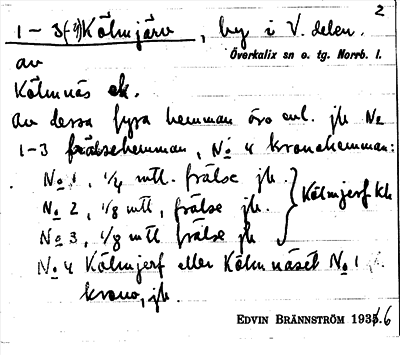 2
1 – 3(-4) Kölmjärv, by i V. delen.
Överkalix sn o. tg. Norrb. l.
av
Kölmnäs ek.
Av dessa fyra hemman äro enl. jb No
1-3 frälsehemman, No 4 kronohemman:
No 1, 1/4 mtl. frälse jb.
No 2, 1/8 mtl, frälse jb. } Kölmjerf kb
No 3, 1/8 mtl frälse jb
No 4 Kölmjerf eller Kölmnäset No 1
krono, jb.
EDVIN BRÄNNSTRÖM 1936